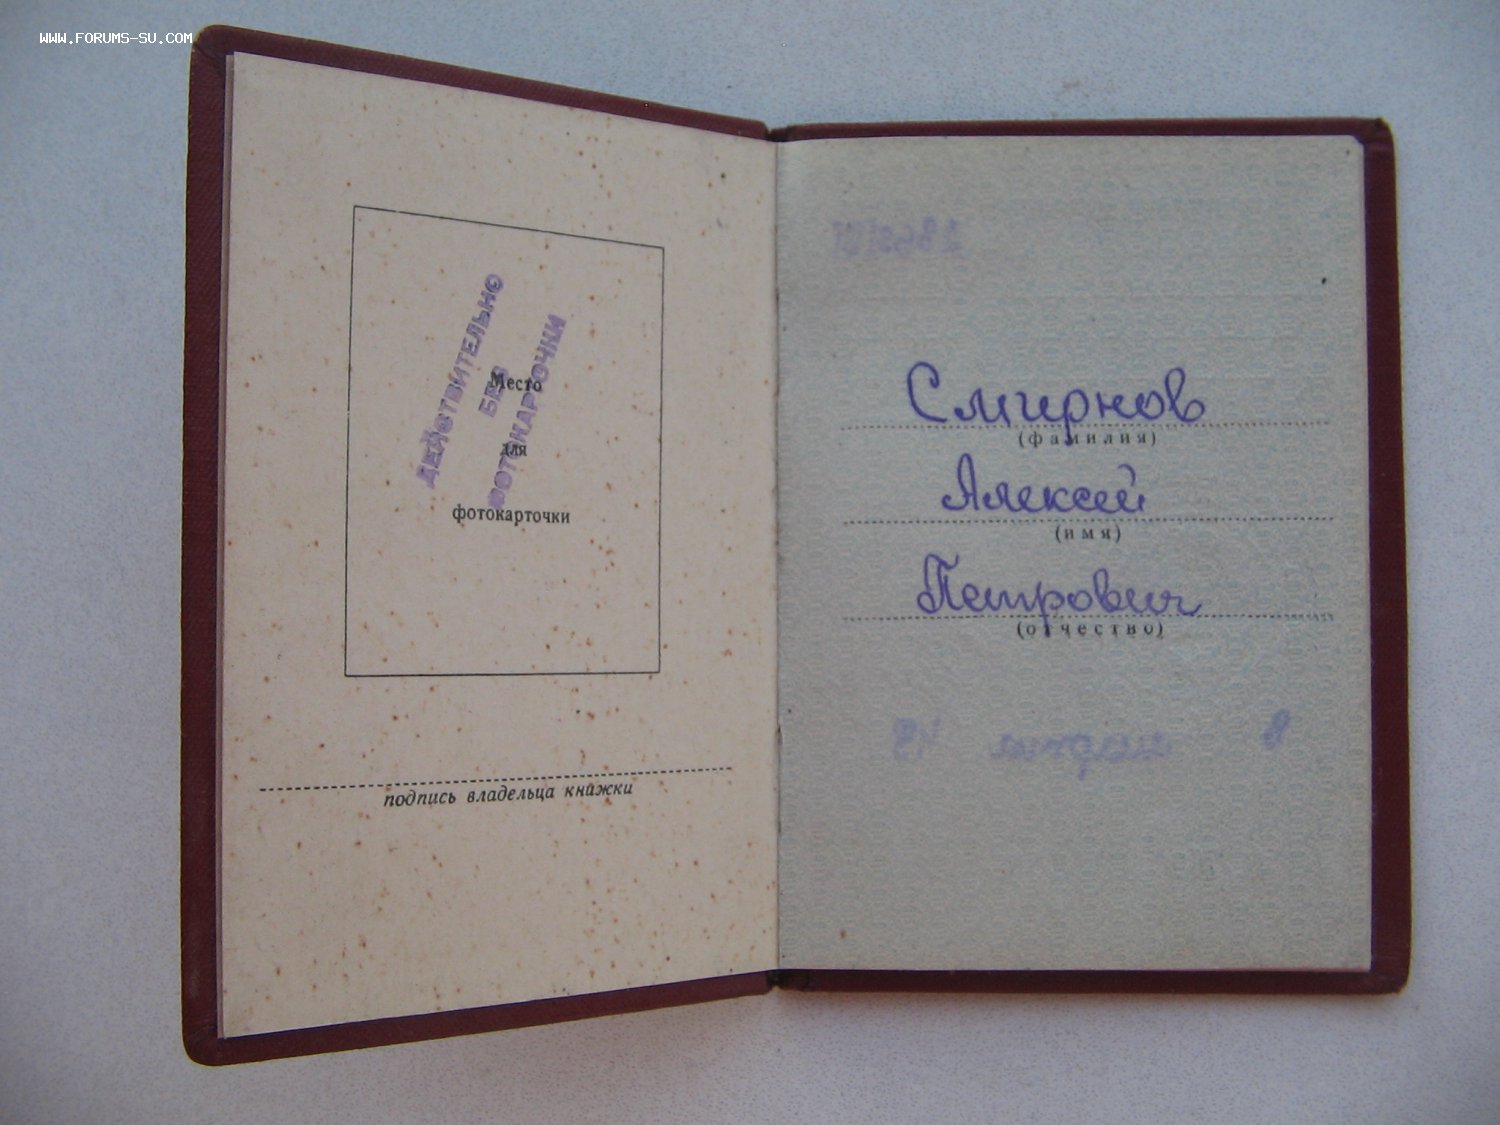 WWW.FORUMS-SU.COM
ДЕЙСТВИТЕЛЬНО
БЕЗ
ФОТОКАРТОЧКИ
Место
для
фотокарточки
подпись владельца книжки
Смирнов
(фамилия)
Алексей
(имя)
Петрович
(отчество)